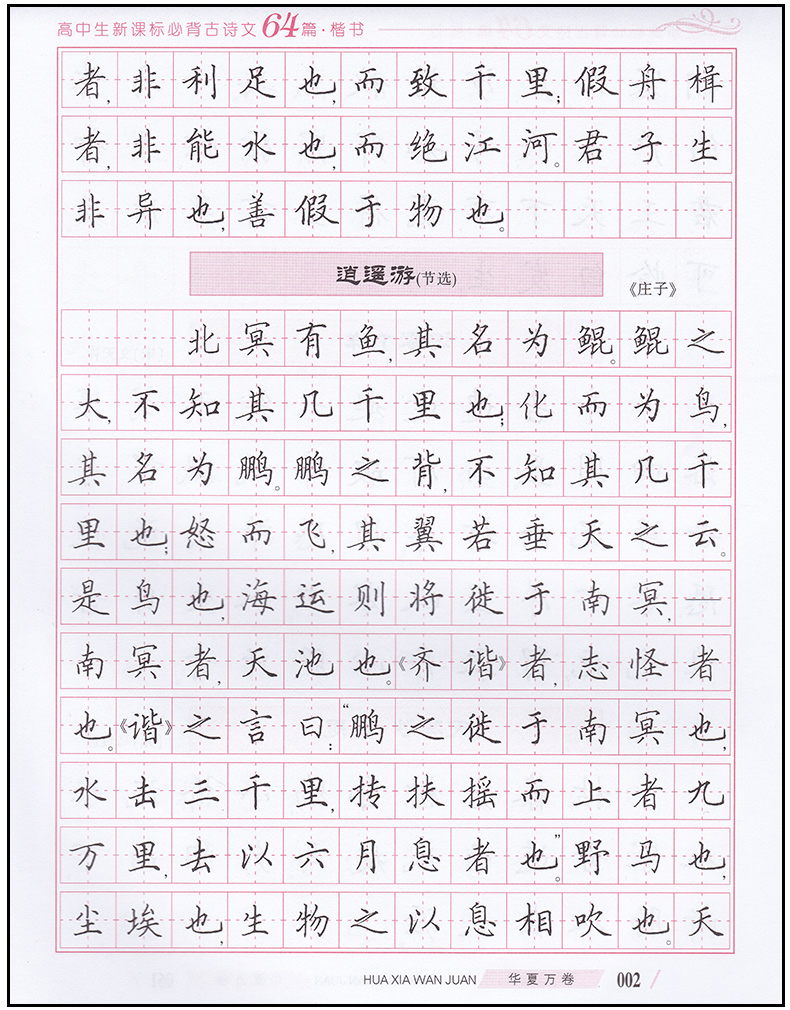 高中生新课标必背古诗文64篇·楷书
者,非利足也,而致千里;假舟楫
者,非能水也,而绝江河。君子生
非异也,善假于物也。
逍遥游(节选)
《庄子》
北冥有鱼,其名为鲲。鲲之
大,不知其几千里也;化而为鸟,
其名为鹏。鹏之背,不知其几千
里也;怒而飞,其翼若垂天之云。
是鸟也,海运则将徙于南冥,—
南冥者,天池也。《齐谐》者,志怪者
也。《谐》之言曰:“鹏之徙于南冥也,
水击三千里,抟扶摇而上者九
万里,去以六月息者也。”野马也,
尘埃也,生物之以息相吹也。天
HUA XIA WAN JUAN 华夏万卷 002